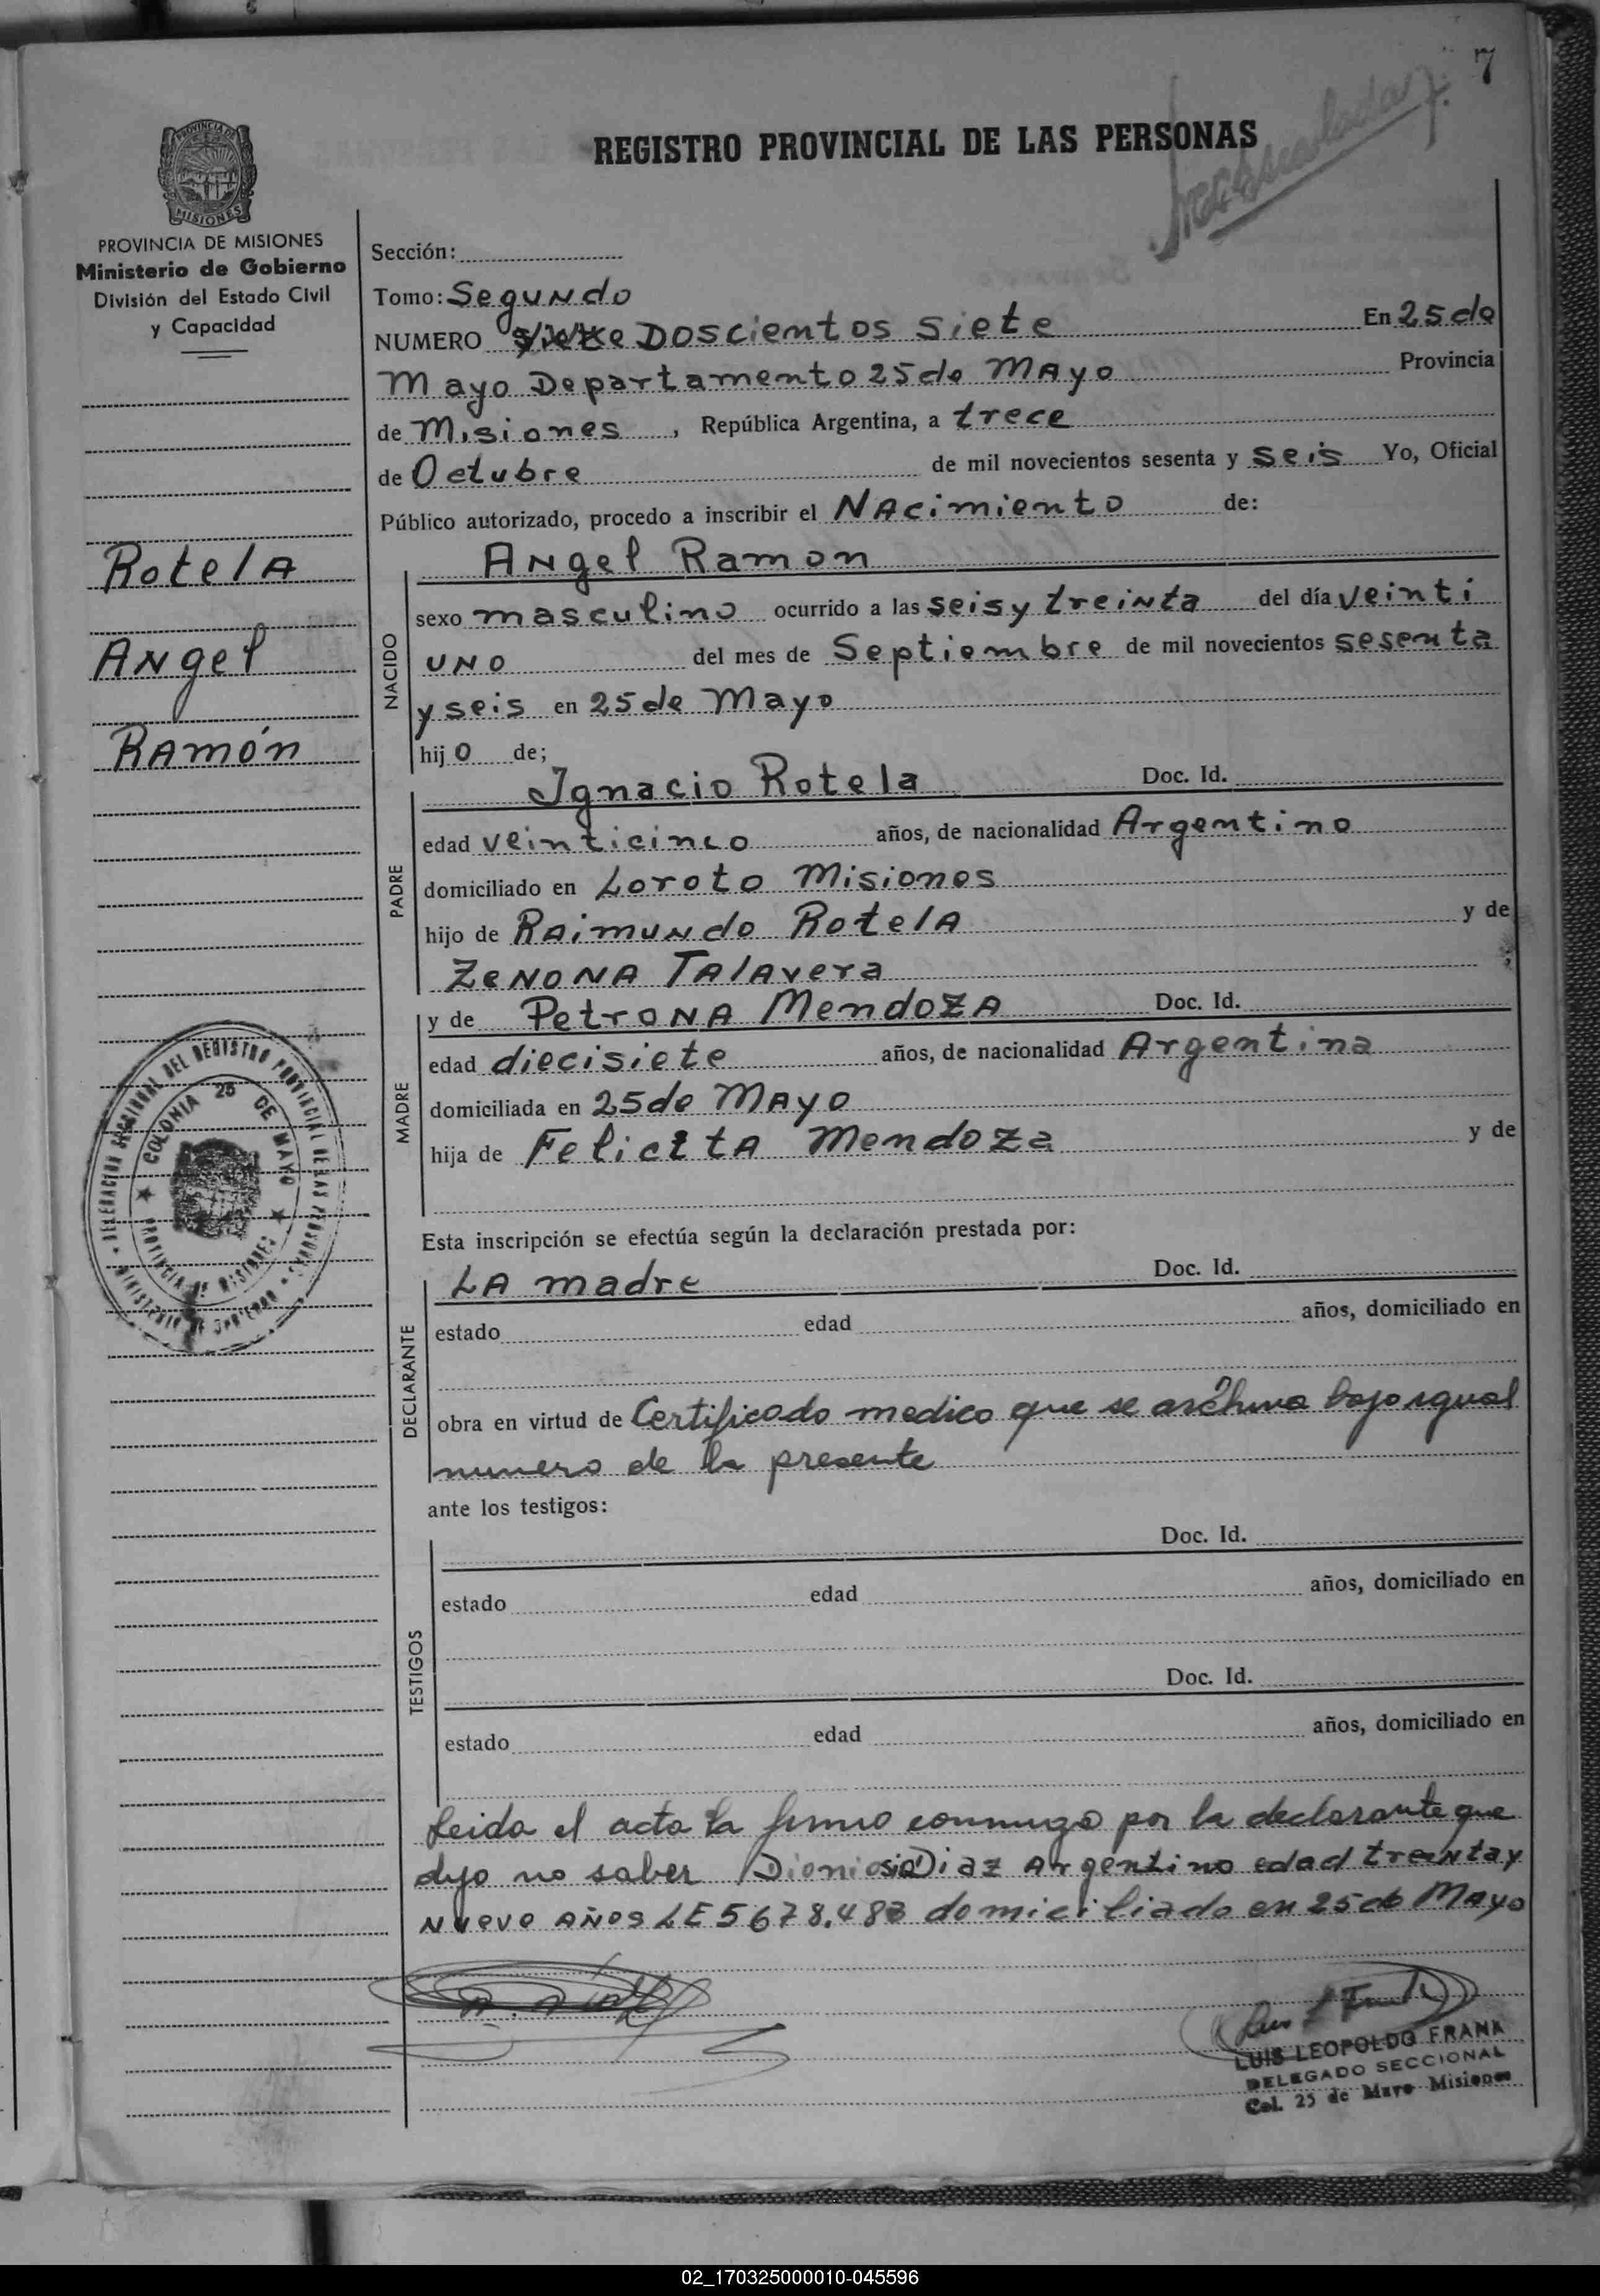 7
REGISTRO PROVINCIAL DE LAS PERSONAS
PROVINCIA DE
MISIONES
PROVINCIA DE MISIONES
Ministerio de Gobierno
División del Estado Civil
y Capacidad
Rotela
Angel
Ramón
Sección:
Tomo: Segundo
NUMERO siete Doscientos siete En 25 de
Mayo Departamento 25 de Mayo Provincia
de Misiones, República Argentina, a trece
de Octubre de mil novecientos sesenta y seis Yo, Oficial
Público autorizado, procedo a inscribir el Nacimiento de:
NACIDO
Angel Ramon
sexo masculino ocurrido a las seis y treinta del día veinti
uno del mes de Septiembre de mil novecientos sesenta
y seis en 25 de Mayo
hijo de;
PADRE
Ignacio Rotela Doc. Id.
edad veinticinco años, de nacionalidad Argentino
domiciliado en Loroto Misiones
hijo de Raimundo Rotela y de
Zenona Talavera ;
MADRE
y de Petrona Mendoza Doc. Id.
edad diecisiete años, de nacionalidad Argentina
domiciliada en 25 de Mayo
hija de Felicita Mendoza y de
DELEGACION SECCIONAL DEL REGISTRO PROVINCIAL DE LAS PERSONAS
MINISTERIO DE GOBIERNO
COLONIA 25 DE MAYO
PROVINCIA DE MISIONES
Esta inscripción se efectúa según la declaración prestada por:
DECLARANTE
La madre Doc. Id.
estado edad años, domiciliado en
obra en virtud de Certificado medico que se archiva bajo igual
numero de la presente
ante los testigos:
TESTIGOS
Doc. Id.
estado edad años, domiciliado en
Doc. Id.
estado edad años, domiciliado en
Leida el acta la firmo conmigo por la declarante que
dijo no saber Dionicio Diaz Argentino edad treinta y
nueve años LE 5678.483 domiciliado en 25 de Mayo
LUIS LEOPOLDO FRANK
DELEGADO SECCIONAL
Col. 25 de Mayo Misiones
02_170325000010-045596